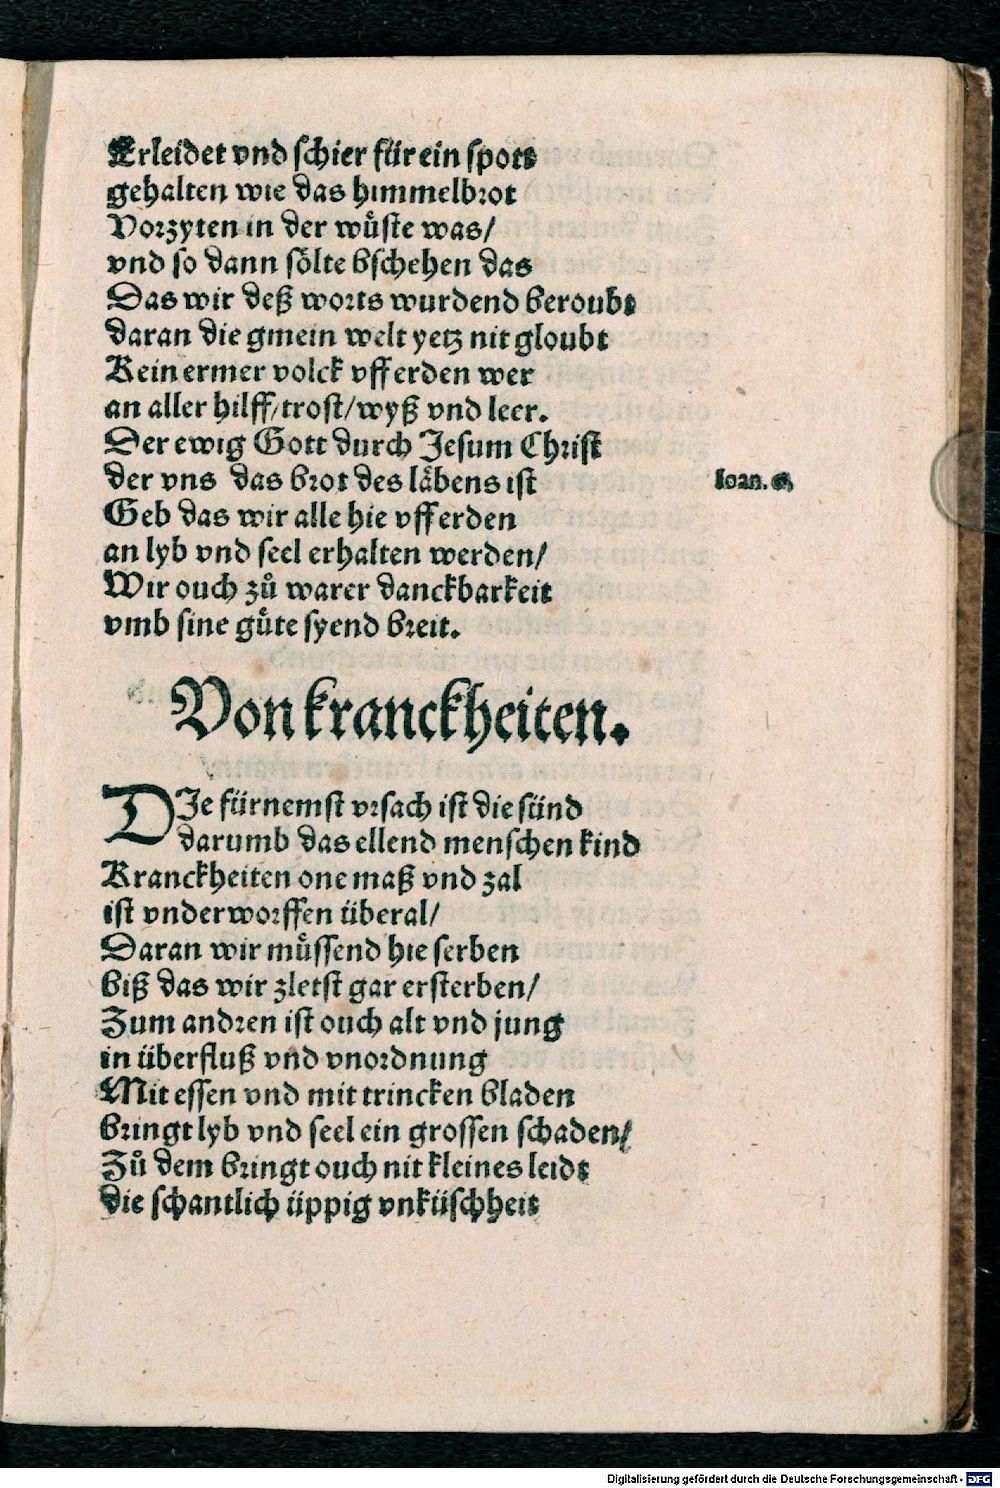 Erleidet vnd schier für ein spott
gehalten wie das himmelbrot
Vorzyten in der wuͤste was/
vnd so dann soͤlte bschehen das
Das wir deß worts wurdend beroubt
daran die gmein welt yetz nit gloubt
Kein ermer volck vff erden wer
an aller hilff/trost/wyß vnd leer.
Der ewig Gott durch Jesum Christ
der vns das brot des laͤbens ist
Ioan. 6.
Geb das wir alle hie vff erden
an lyb vnd seel erhalten werden/
Wir ouch zuͦ warer danckbarkeit
vmb sine guͤte syend breit.
Von kranckheiten.
DJe fürnemst vrsach ist die sünd
darumb das ellend menschen kind
Kranckheiten one maß vnd zal
ist vnderworffen überal/
Daran wir muͤssend hie serben
biß das wir zletst gar ersterben/
Zum andren ist ouch alt vnd jung
in überfluß vnd vnordnung
Mit essen vnd mit trincken bladen
bringt lyb vnd seel ein grossen schaden/
Zuͦ dem bringt ouch nit kleines leidt
die schantlich üppig vnküschheit
Digitalisierung gefördert durch die Deutsche Forschungsgemeinschaft - DFG